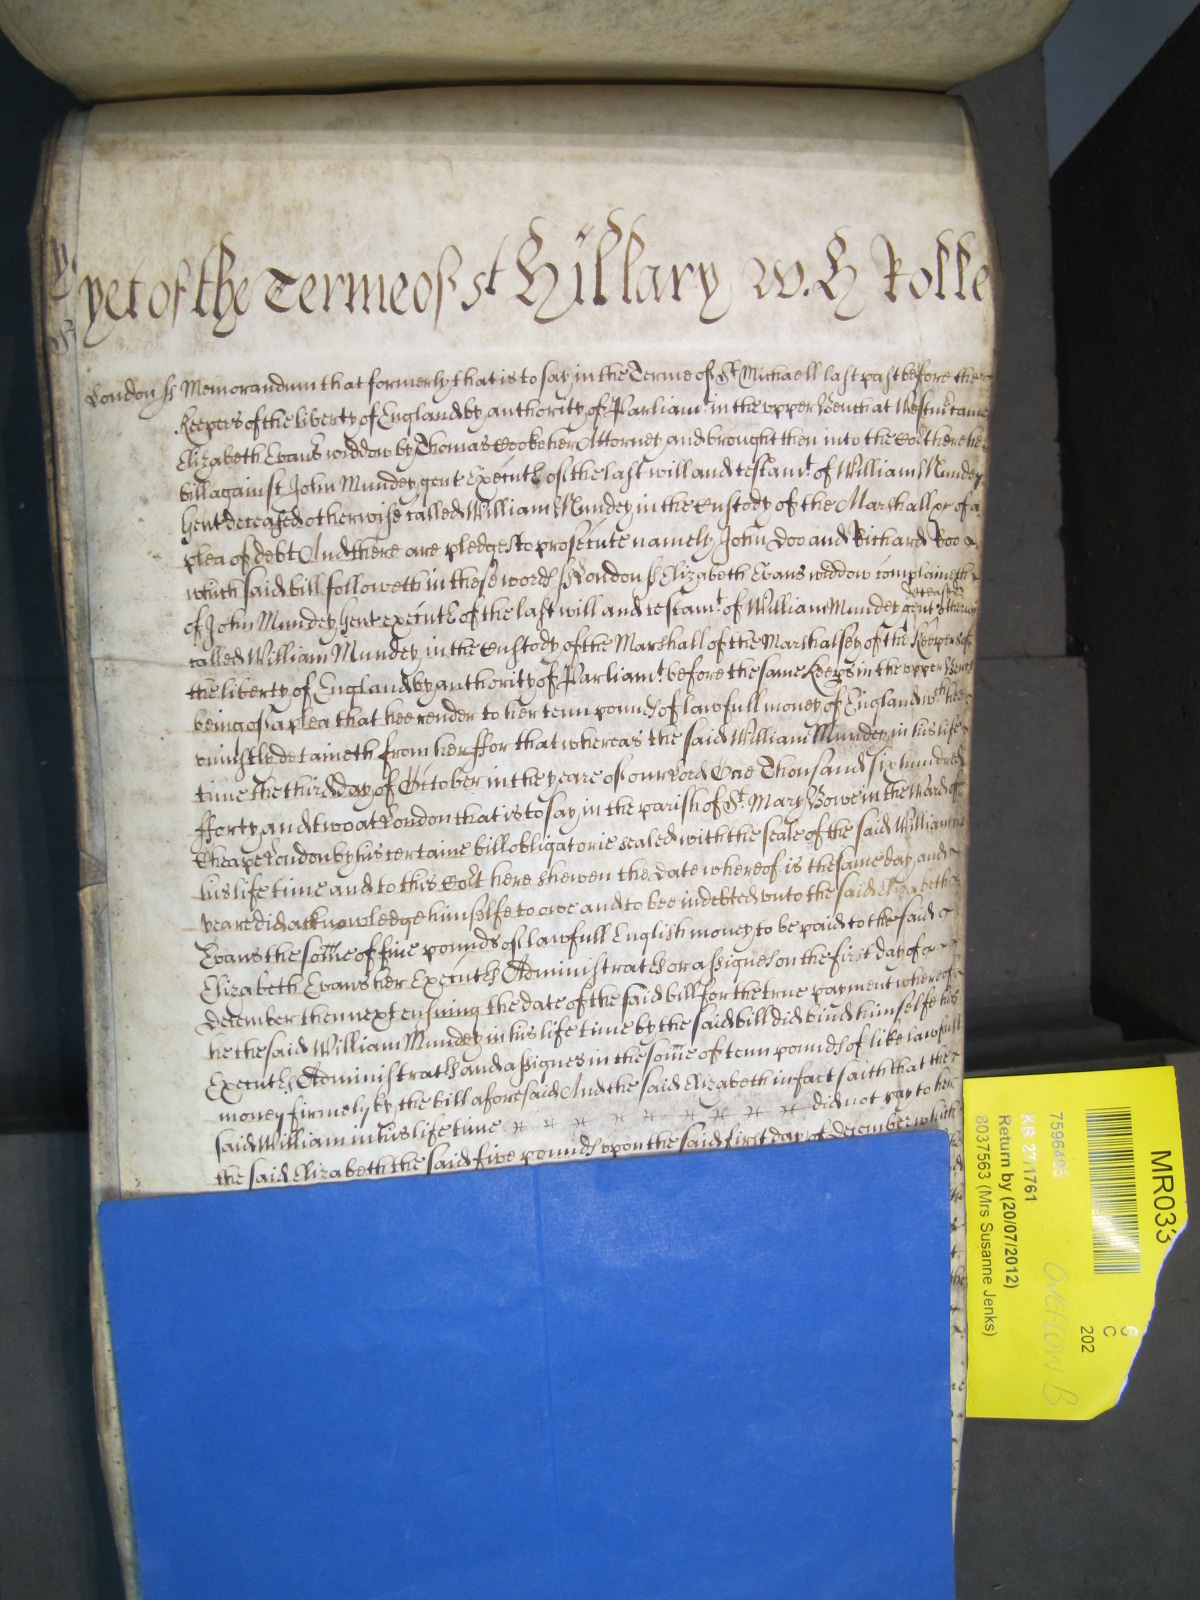 yet of the Terme of St Hillary W. H Rolle
London ss Memorandum that formerly that is to say in the Terme of St Michaell last past before the
Keepers of the liberty of England by authority of Parliamt in the upper Bench at Westmr came
Elizabeth Evans widdow by Thomas Cooke her Attorney and brought then into the Cort here her
bill against John Mundey gent Executr of the last will and testamt of William Mundey
gent deceased otherwise called William Mundey in the Custody of the Marshall &c of a
plea of debt And there are pledges to prosecute namely John Doo and Richard Roo
which said bill followeth in these words ss London ss Elizabeth Evans widdow complaineth
of John Mundey gent executr of the last will and testamt of William Mundey gent deceased otherwise
called William Mundey in the Custody of the Marshall of the Marshalsey of the Keepers of
the liberty of England by authority of Parliamt before the same Keeps in the upper Bench
being of a plea that hee render to her tenn pounds of lawfull money of England wch hee
uniustly detaineth from her ffor that whereas the said William Mundey in his life
time the third day of October in the yeare of our Lord One Thousand six hundred
fforty and two at London that is to say in the parish of St Mary Bowe in the Ward of
Cheape London by his certaine bill obligatorie sealed with the seale of the said William in
his life time and to this Cort here shewen the date whereof is the same day and
yeare did acknowledge himselfe to owe and to bee indebted unto the said Elizabeth
Evans the some of five pounds of lawfull English money to be paid to the said
Elizabeth Evans her Executrs Administratrs or assignes on the first day of
December then next ensuing the date of the said bill for the true payment whereof
he the said William Mundey in his life time by the said bill did bind himselfe his
Executrs Administratrs and assignes in the some of tenn pounds of like lawfull
money firmely by the bill aforesaid And the said Elizabeth in fact saith that the
said William in his life time did not pay to her
the said Elizabeth the said five pounds upon the said first day of december which
MR033
C
202
7596495
Overflow B
KB 27/1761
Return by (20/07/2012)
8037563 (Mrs Susanne Jenks)